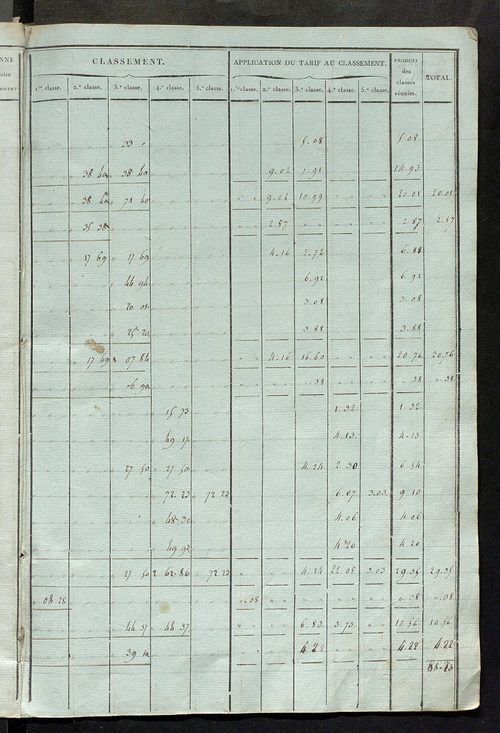 CLASSEMENT. APPLICATION DU TARIF AU CLASSEMENT. PRODUIT des classes réunies. TOTAL.
1.re classe. 2.e classe. 3.e classe. 4.e classe. 5.e classe. 1.re classe. 2.e classe. 3.e classe. 4.e classe. 5.e classe.
33 5.08 5.08
38 40 38 40 9.02 5.91 14.93
38 40 71 40 9.02 10.99 20.01 20.01
35 38 2.87 2.87 2.87
17 69 17 69 4.16 2.72 6.88
44 94 6.92 6.92
20 01 3.08 3.08
25 20 3.88 3.88
17 69 07 84 4.16 16.60 20.76 20.76
.38 .38 .38
15 73 1.32 1.32
49 17 4.13 4.13
27 50 27 50 4.24 2.30 6.54
72 23 72 23 6.07 3.03 9.10
48 30 4.06 4.06
49 92 4.20 4.20
27 50 2 62 86 72 23 4.24 22.08 3.03 29.35 29.35
04 28 .08 .08 .08
44 37 44 37 6.83 3.73 10.56 10.56
4.22 4.22 4.22